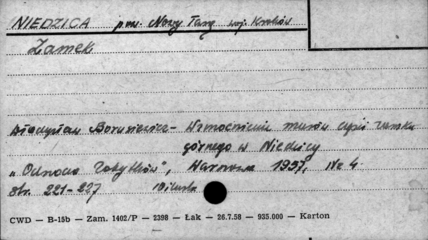 NIEDZICA pow. Nowy Targ woj. Kraków
Zamek
Władysław Borusiewicz - Wzmocnienie murów części zamku
górnego w Niedzicy
"Ochrona Zabytków", Warszawa 1957, Nr 4
str. 221-227 10 ilustr.
CWD — B-15b — Zam. 1402/P — 2398 — Łak — 26.7.58 — 935.000 — Karton